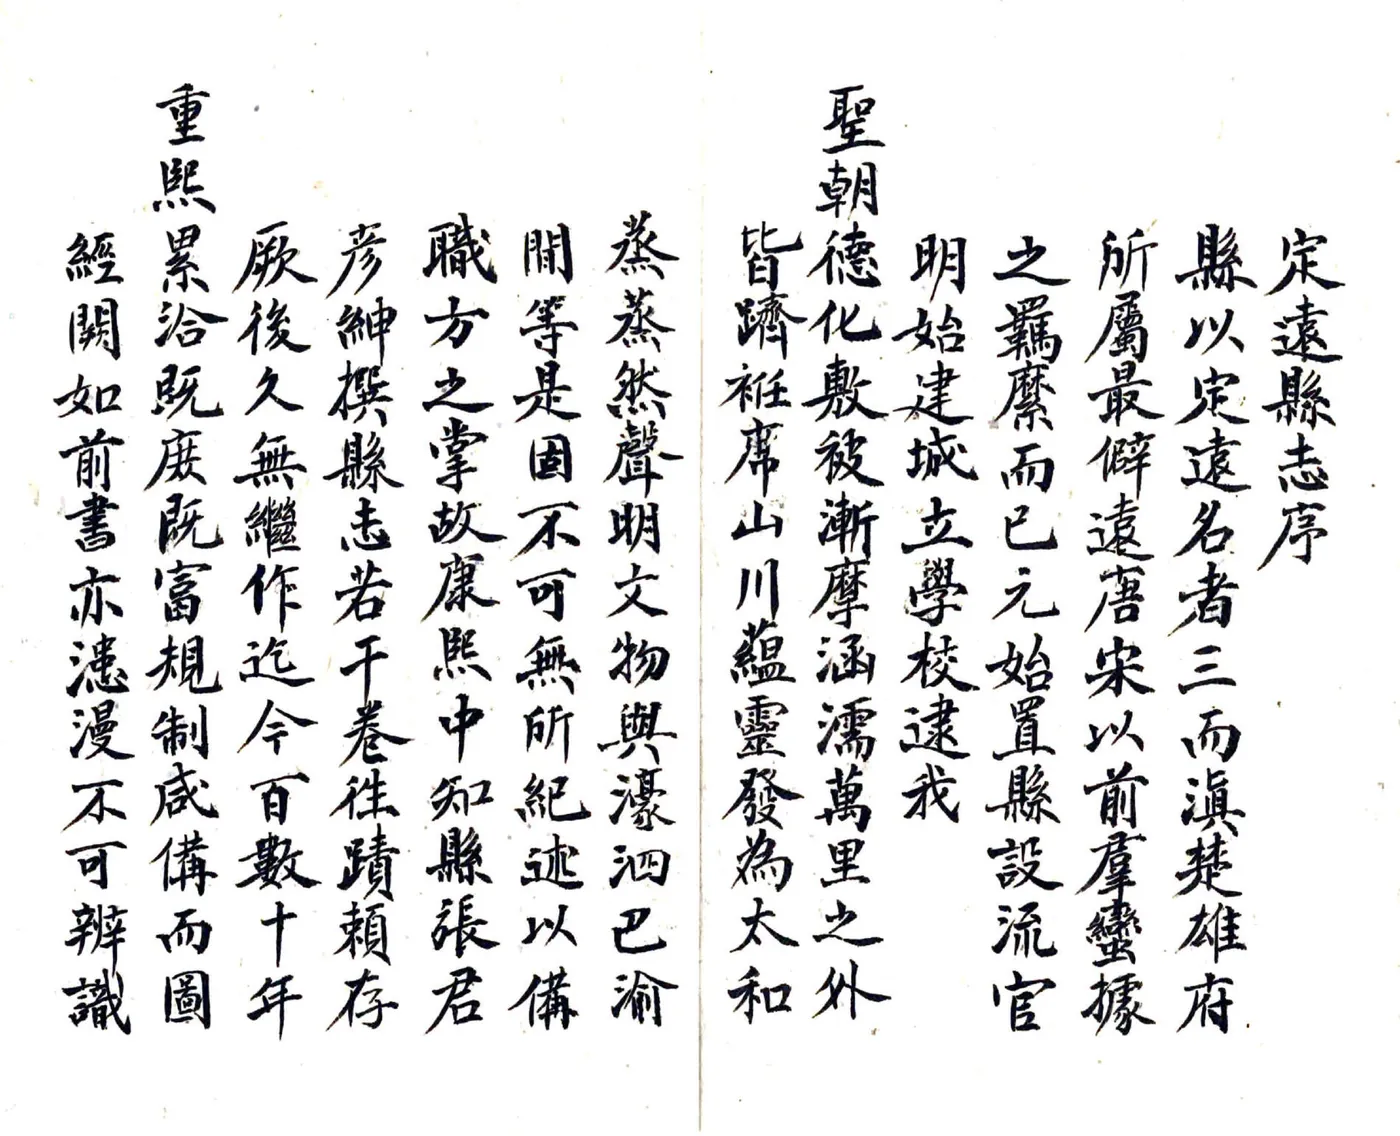 定遠縣志序
縣以定遠名者三而滇楚雄府
所屬最僻遠唐宋以前羣蠻據
之羈縻而已元始置縣設流官
明始建城立學校逮我
聖朝德化敷被漸摩涵濡萬里之外
皆躋袵席山川蘊靈發為太和
蒸蒸然聲明文物與濠泗巴渝
閒等是固不可無所紀述以備
職方之掌故康熙中知縣張君
彦紳撰縣志若干卷徃蹟賴存
厥後久無繼作迄今百數十年
重熙累洽既庶既富規制咸備而圖
經闕如前書亦漶漫不可辨識